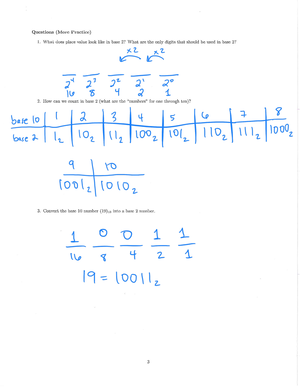 Questions (More Practice)
1. What does place value look like in base 2? What are the only digits that should be used in base 2?
x2 x2
2⁴ 2³ 2² 2¹ 2⁰
16 8 4 2 1
2. How can we count in base 2 (what are the "numbers" for one through ten)?
base 10 1 2 3 4 5 6 7 8
base 2 1₂ 10₂ 11₂ 100₂ 101₂ 110₂ 111₂ 1000₂
9 10
1001₂ 1010₂
3. Convert the base 10 number (19)₁₀ into a base 2 number.
1 0 0 1 1
16 8 4 2 1
19 = 10011₂
3